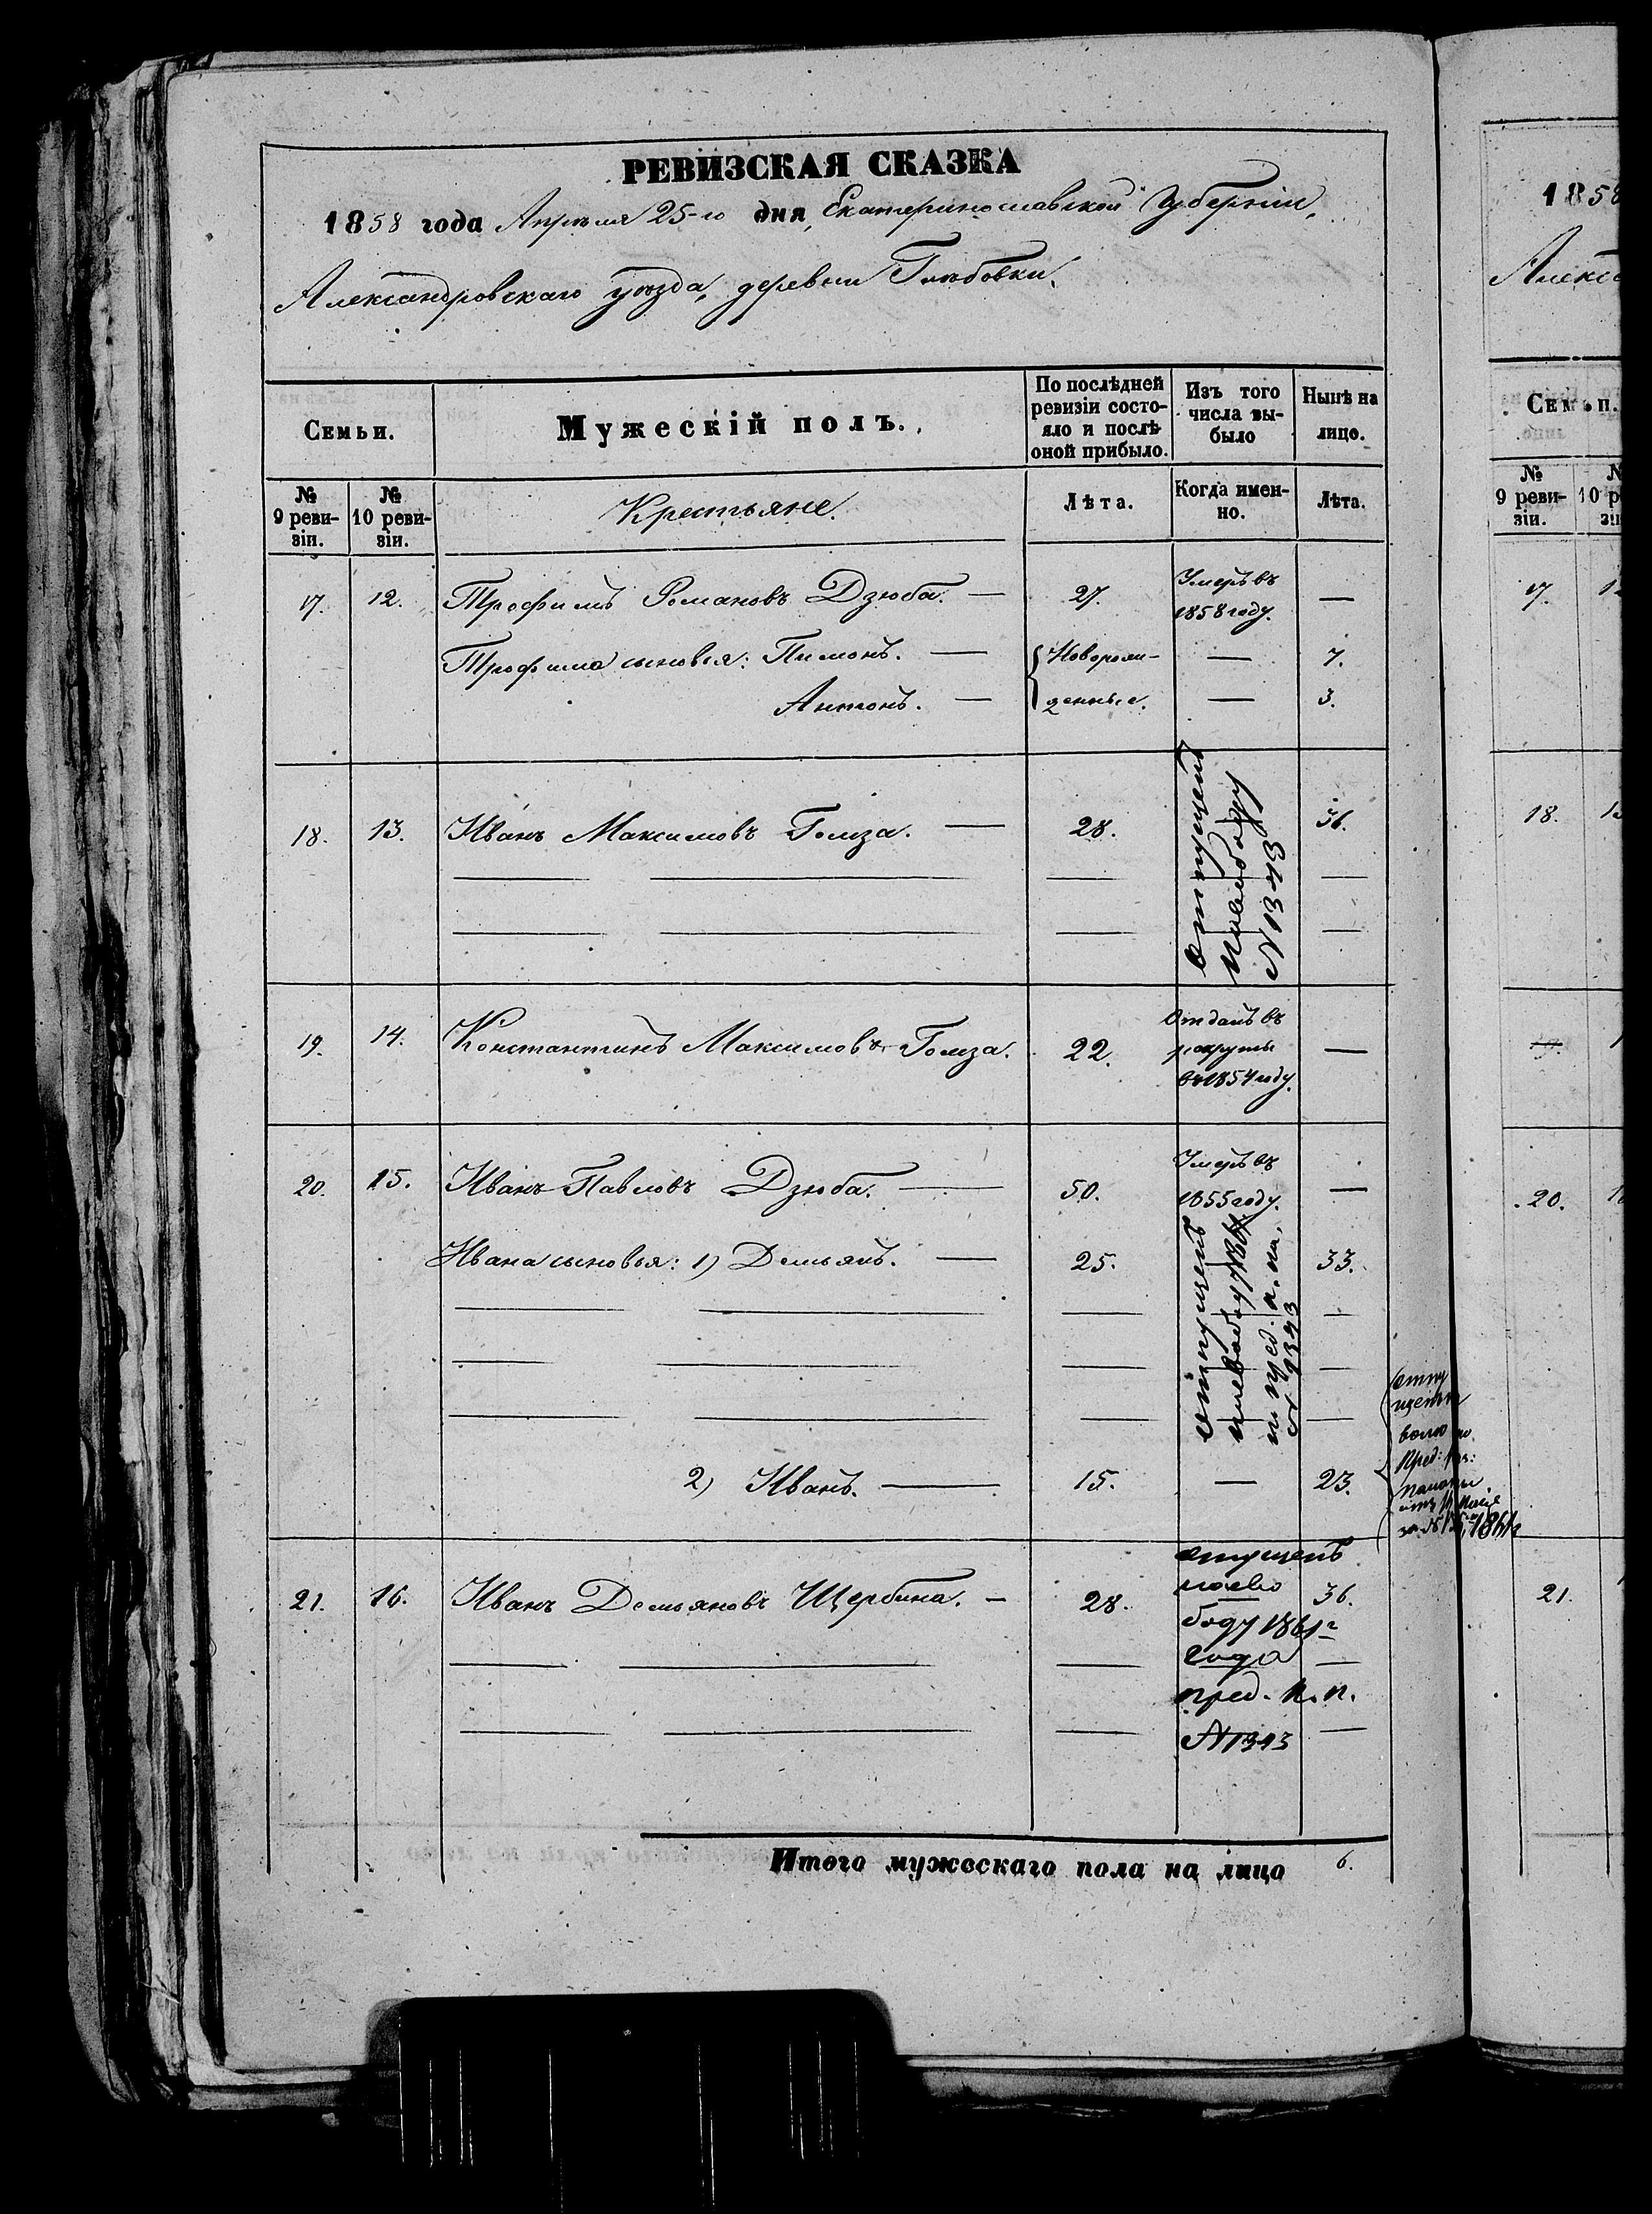 РЕВИЗСКАЯ СКАЗКА
1858 года Апрѣля 25-го дня, Екатеринославской Губерніи,
Александровскаго уѣзда, деревни Глѣбовки.
Семьи.
Мужескій полъ.
По послѣдней ревизіи состояло и послѣ оной прибыло.
Изъ того числа выбыло
Нынѣ на лицо.
№ 9 ревизіи.
№ 10 ревизіи.
Крестьяне.
Лѣта.
Когда именно.
Лѣта.
17. 12. Трофимъ Романовъ Дзюба. — 27. Умеръ въ 1858 году. —
Трофима сыновья: Пимонъ. — Новорож- — 7.
Антонъ. — денные. — 3.
18. 13. Иванъ Максимовъ Гомза. — 28. — 36.
отпущенъ
на свободу
N 1343
19. 14. Константинъ Максимовъ Гомза. 22. Отданъ въ рекруты въ 1854 году. —
20. 15. Иванъ Павловъ Дзюба. — 50. Умеръ въ 1855 году. —
Ивана сыновья: 1) Демьянъ. — 25. 33.
отпущенъ
на свободу 1861
пред. к. п.
N 1343
2) Иванъ. — 15. — 23.
отпу
щенъ
волю по
Пред: каз:
палаты
1861
21. 16. Иванъ Демьяновъ Щербина. — 28. — 36.
отпущенъ
на сво
боду 1861 г
года
пред. к. п.
N 1343
Итого мужескаго пола на лицо 6.
1858
Алекса
Семьи.
№ 9 ревизіи.
№ 10 р
17.
18.
19.
20.
21.